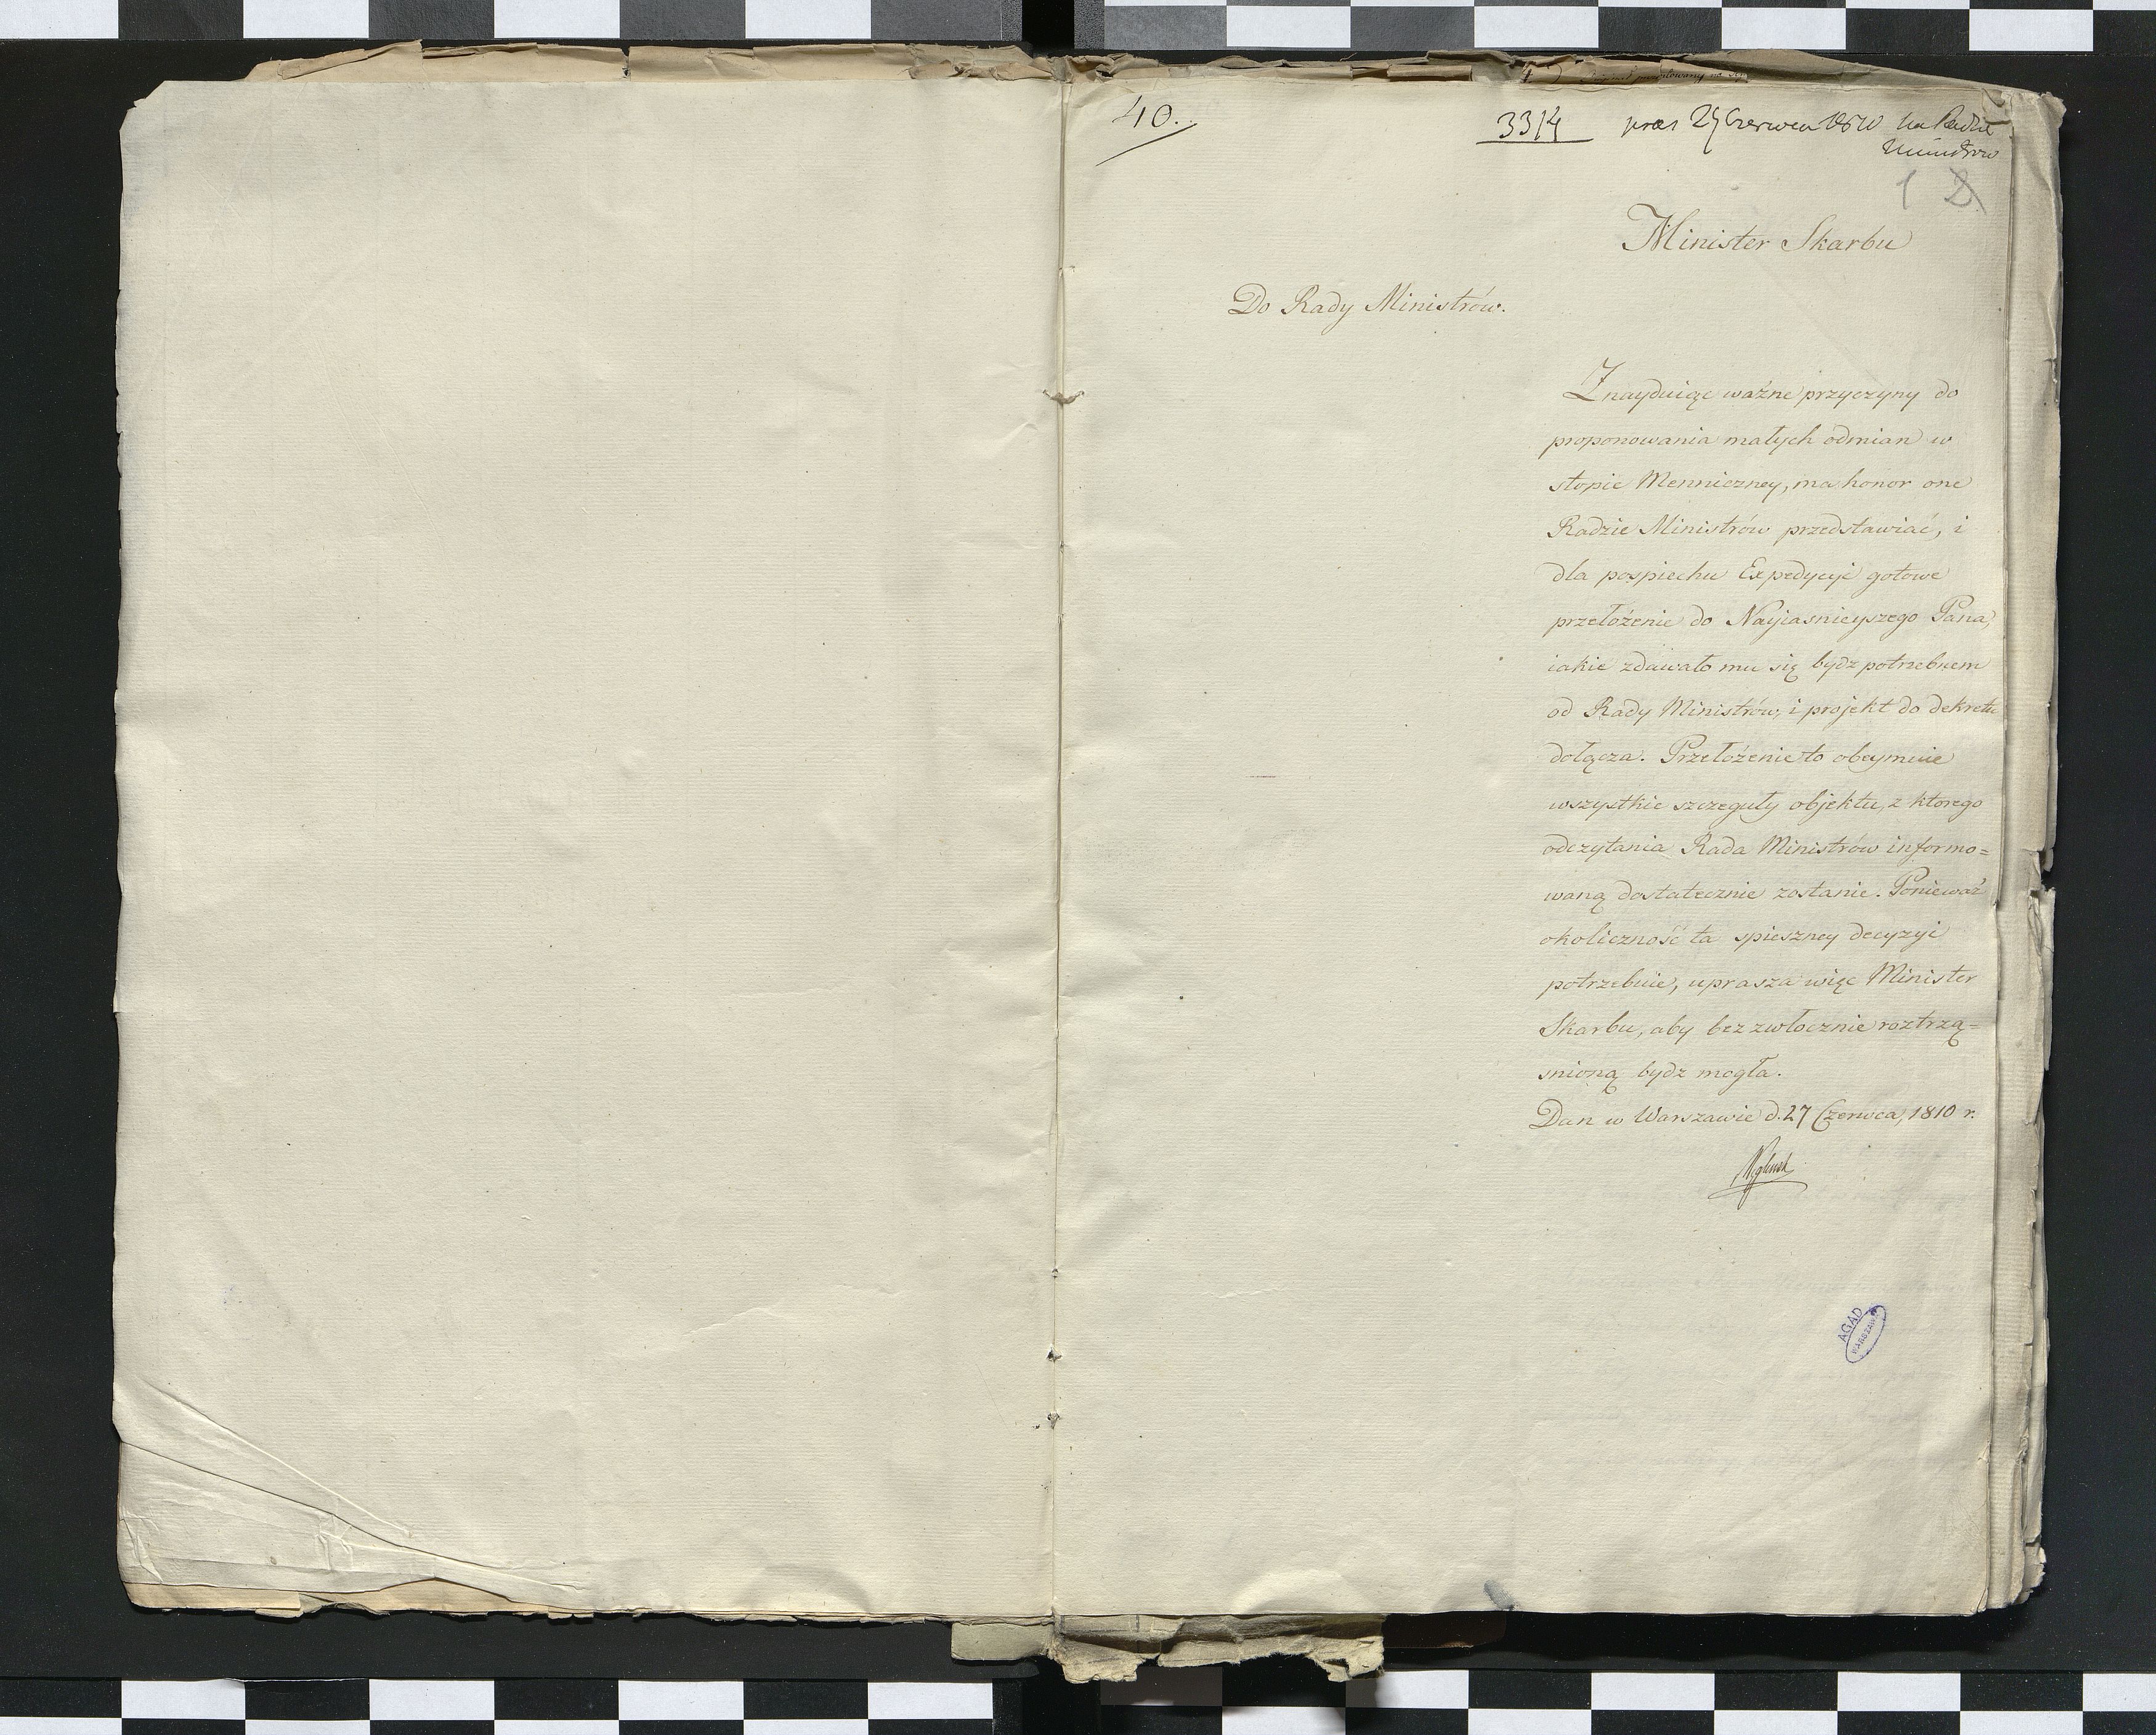 40.
3314 præs 29 Czerwca 1810 na Radzie
Ministrow
1 2
Minister Skarbu
Do Rady Ministrów.
Znayduiąc ważne przyczyny do
proponowania małych odmian w
stopie Menniczney, ma honor one
Radzie Ministrów przedstawiać, i
dla pospiechu Expedycyi gotowe
przełożenie do Nayiasnieyszego Pana,
iakie zdawało mu się bydz potrzebnem
od Rady Ministrów, i projekt do dekretu
dołącza. Przełożenie to obeymuie
wszystkie szczeguły objektu, z ktorego
odczytania Rada Ministrów informo=
waną dostatecznie zostanie. Ponieważ
okoliczność ta spieszney decyzyi
potrzebuie, uprasza więc Minister
Skarbu, aby bezzwłocznie roztrzą=
snioną bydz mogła.
Dan w Warszawie d. 27 Czerwca, 1810 r.
AGAD
WARSZAWA